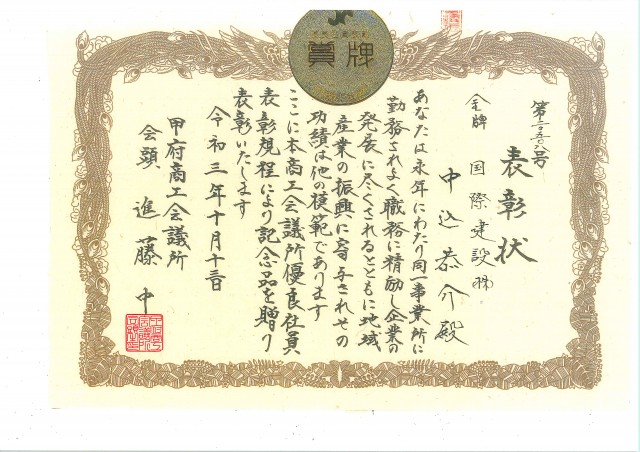 賞牌
表彰状
金牌
国際建設㈱
中込恭介殿
あなたは永年にわたり同一事業所に
勤務されよく職務に精励し企業の
発展に尽くされるとともに地域
産業の振興に寄与されその
功績は他の模範であります
ここに本商工会議所優良社員
表彰規程により記念品を贈り
表彰いたします
令和三年十月十三日
甲府商工会議所
会頭 進藤中